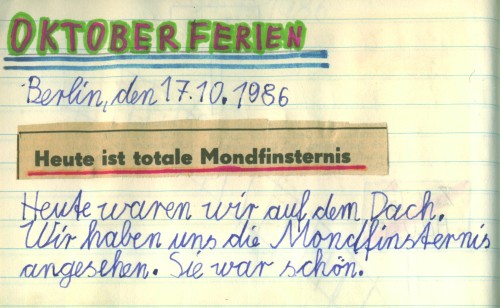 OKTOBERFERIEN
Berlin, den 17.10.1986
Heute ist totale Mondfinsternis
Heute waren wir auf dem Dach.
Wir haben uns die Mondfinsternis
angesehen. Sie war schön.